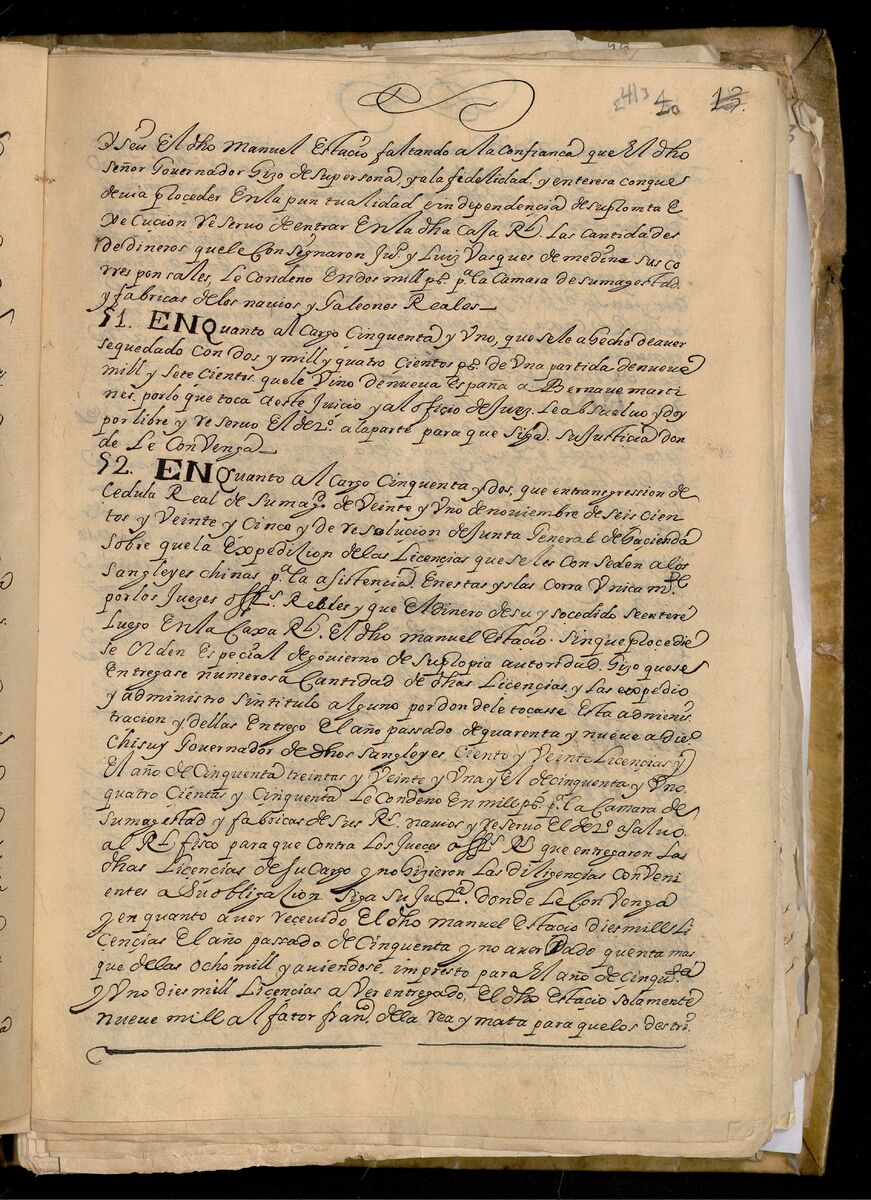 413 40 13.
Y seu El dho Manuel Estacio faltando a la confianca que El dho
señor Governador Hizo de su persona, y a la fidelidad, y entereza con que
devia proceder En la puntualidad e independencia de su promta E
Xecucion Reservo de entrar En la dha Casa Rl. Las cantidades
de dineros que le Consignaron Jun. y Luiz Vasques de medina sus co
rresponsales, Le Condeno En dos mill ps. pa. la Camara de su magestad.
y fabricas de los navios y Galeones Reales
51. ENQuanto al Cargo Cinquenta y Vno, que se le a hecho de aver
se quedado Con dos y mill y quatro Cientos ps. de Vna partida de nueve
mill y sete Cientos. que le Vino de nueva España a Bernave marti
nes, por lo que toca a este Juicio y al officio de Juez. Le absuelvo y doy
por libre y Reservo El dro. a la parte para que siga su Justicia don
de Le Convenga
52. ENQuanto al Cargo Cinquenta y dos, que en transgression de
Cedula Real de su magd. de Veinte y Vno de noviembre de seis cien
tos y Veinte y Cinco y de resolucion de Junta General de hacienda
sobre que la Expedision de las Licencias que se les Conseden a los
sangleyes chinas, pa. la asistencia En estas yslas Corra Vnicamte.
por los Juezes offls. Reales y que el dinero de su y socedido se entere
Luego En la Caxa Rl. El dho manuel Estacio. sin que procedie
se Orden Especial de govierno de su propia autoridad. Hizo que se
Entregase numerosa Cantidad de dhas Licencias, y Las expedio
y administro sin titulo alguno por don de le tocasse Esta adminis
tracion y dellas Entrego El año passado de quarenta y nueve a die
chisuy Governador de dhos sangleyes, Ciento y Veinte Licencias y
El año de Cinquenta treintas y Veinte y Vna y El de cinquenta y Vno.
quatro Cientas y Cinquenta Le Condeno En mill ps. pa. la Camara de
su magestad y fabricas de sus Rs. navios y Reservo El dro. a salvo
al Rl fisco para que Contra Los Jueces offls Rs que entregaron Las
dhas Licencias de su Cargo y no hizieron Las diligencias Conveni
entes a su obligacion siga su Justa. donde Le Convenga
y en quanto a ver recevido El dho manuel Estacio dies mill Li
cencias El año passado de Cinquenta y no aver Dado quenta mas
que de las Ocho mill y aviendose impreso para El año de Cinquta.
y Vno dies mill Licencias a Ver entregado, El dho Estacio solamente
nueve mill al fator fran. de la rea y mata para que los destri.